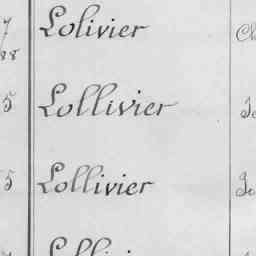 7 Lolivier
88
5 Lollivier
5 Lollivier